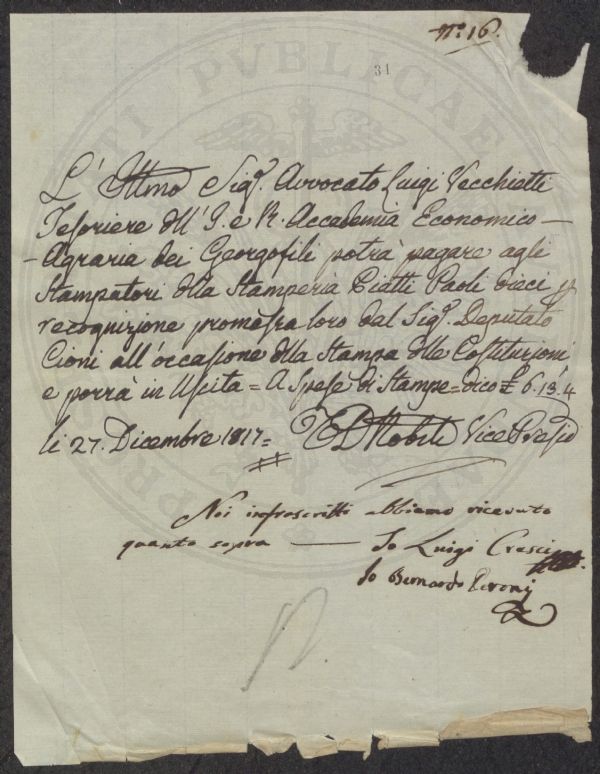 N.° 16.
31
L' Illmo Sig.r Avvocato Luigi Vecchietti
Tesoriere dell' I. e R. Accademia Economico-
-Agraria dei Georgofili potrà pagare agli
Stampatori della Stamperia Piatti Paoli dieci p
recognizione promessa loro dal Sig.r Deputato
Cioni all'occasione della Stampa delle Costituzioni
e porrà in Uscita = A Spese di Stampe = dico £ 6.13.4
li 27. Dicembre 1817=
Nobili Vice Presid
Noi infrascritti abbiamo ricevuto
quanto sopra — Io Luigi Cresci
Io Bernardo Peroni